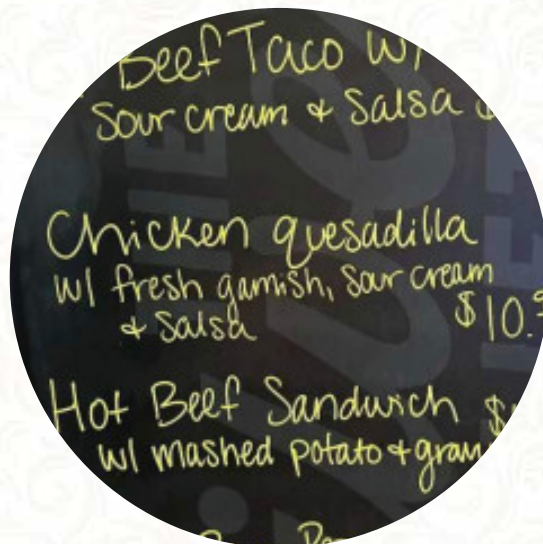 Beef Taco w/
Sour cream & Salsa
Chicken quesadilla
w/ fresh garnish, Sour cream
& Salsa $10.
Hot Beef Sandwich $
w/ mashed potato &